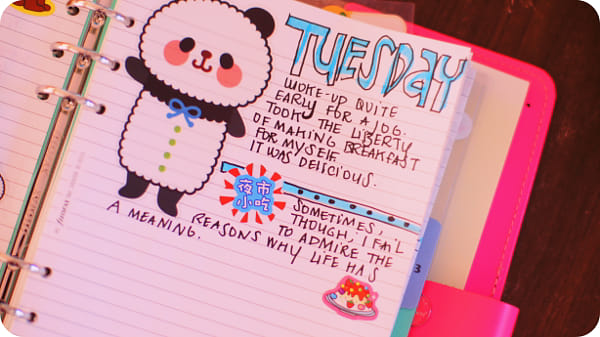 TUESDAY
WOKE-UP QUITE
EARLY FOR A JOG.
TOOK THE LIBERTY
OF MAKING BREAKFAST
FOR MYSELF.
IT WAS DELICIOUS.
夜市
小吃
SOMETIMES,
THOUGH, I FAIL
TO ADMIRE THE
REASONS WHY LIFE HAS
A MEANING.
3